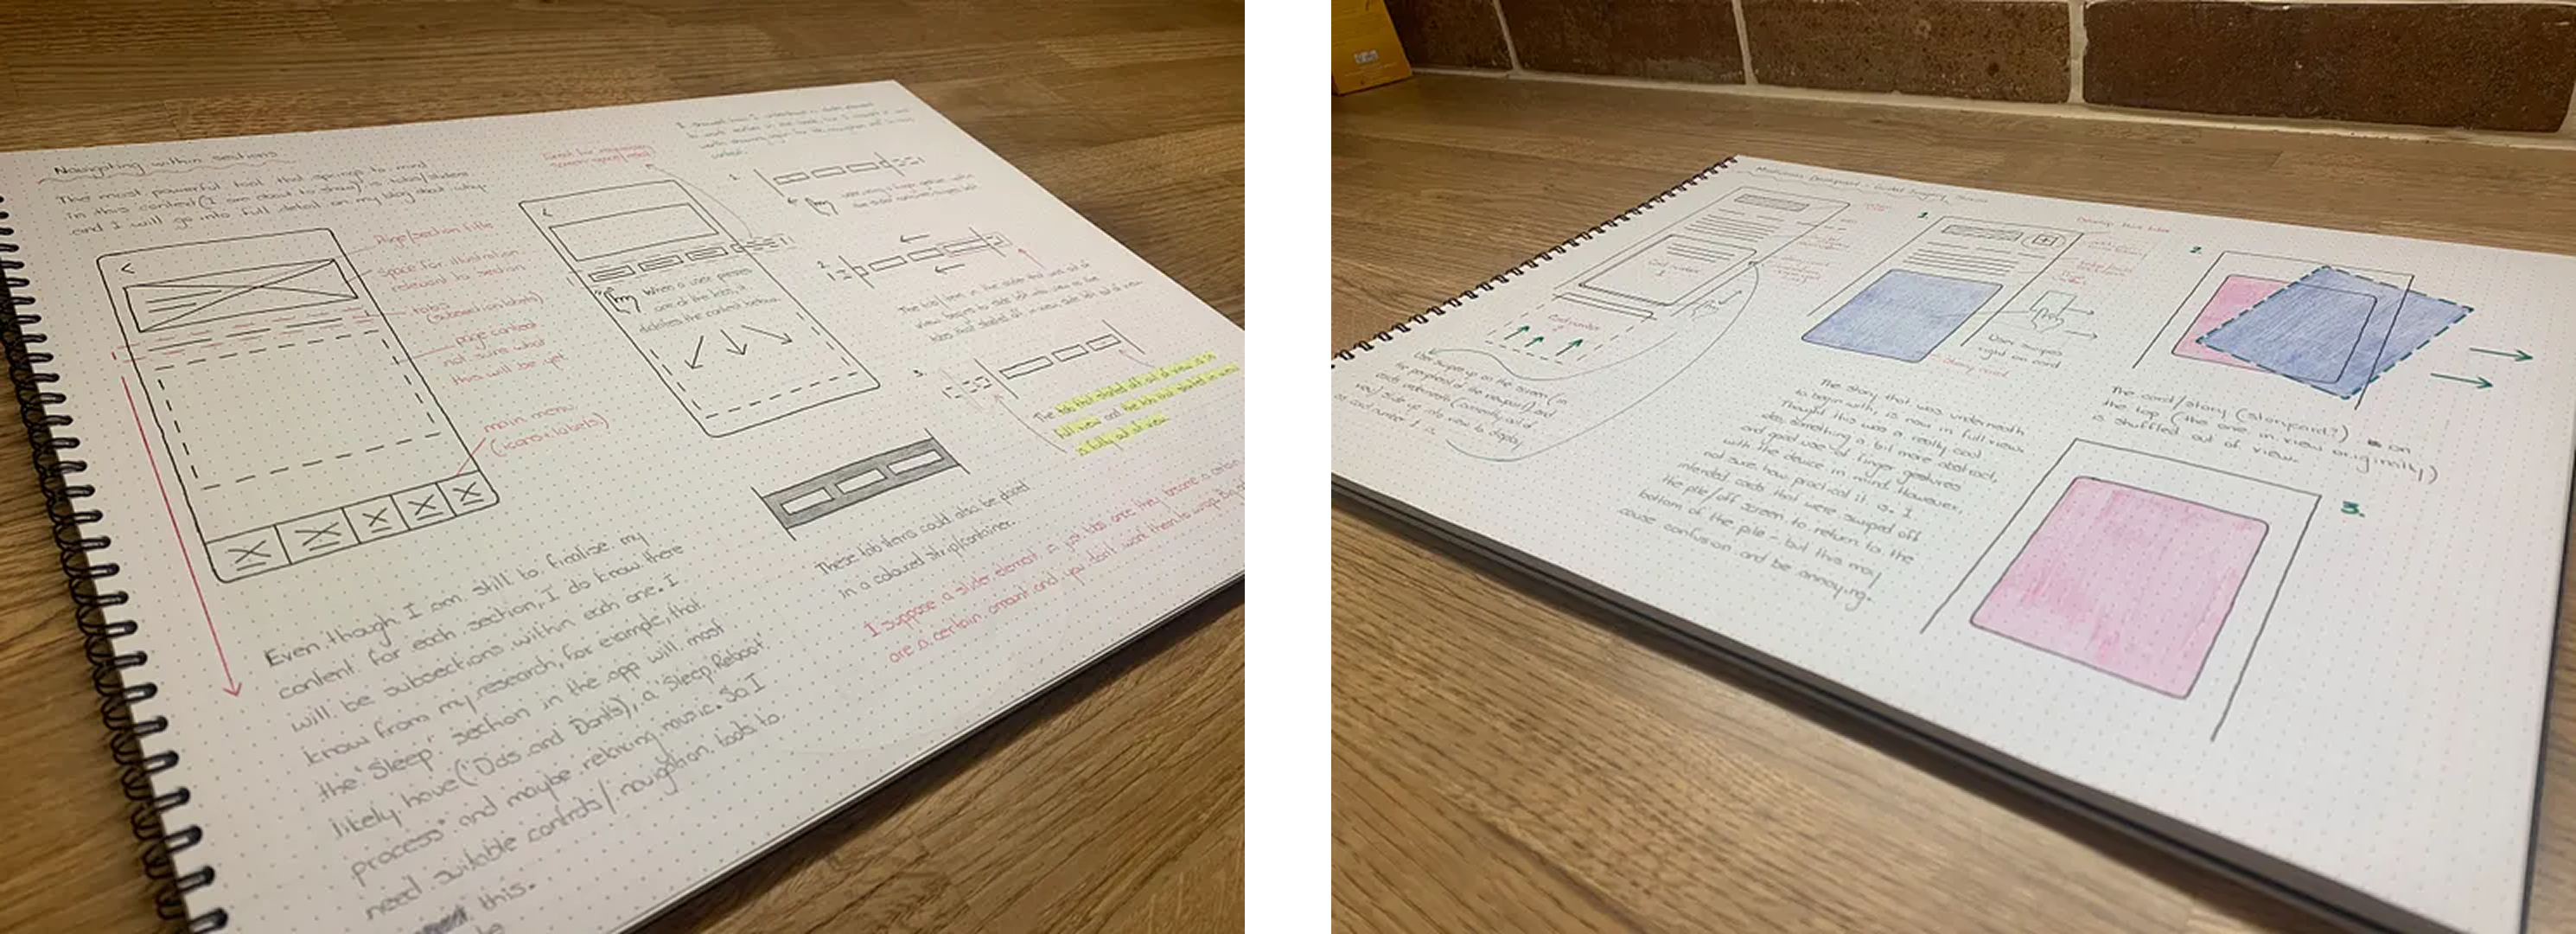 Navigating within sections
The most powerful tool that springs to mind
in this context (I am about to show) is tabs/sliders
and I will go into full detail on my blog about why.
Page/section title
Space for illustration
relevant to section
tabs
(subsection labels)
page content
not sure what
this will be yet
main menu
(icons + labels)
Even though I am still to finalise my
content for each section, I do know there
will be subsections within each one. I
know from my research, for example, that
the 'Sleep' section in the app will most
likely have ('Do's and Don'ts), a 'Sleep Reboot'
process' and maybe relaxing music. So I
need suitable controls/navigation tools to
this.
Great for
screen space
When a user presses
one of the tabs, it
dictates the content below
1.
2.
The tab item in the slider that was out of
view begins to slide into view as the
tabs that started off in view slide out of view
3.
The tab that started off out of view is in
full view and the tab that started in view
is fully out of view.
These tab items could also be placed
in a coloured strip/container.
I suppose a slider element is just tabs once they become a certain
are a certain amount and you don't want them to wrap
Card number
1
Card number
User swipes up on the screen (in
the peripheral of the viewport) and
cards underneath (currently out of
view) slide up into view to display
as card number 1 is.
1.
User swipes
right on card
Story card
The story that was underneath
to begin with, is now in full view.
Thought this was a really cool
idea, something a bit more abstract,
and good use of finger gestures
with the device in mind. However,
not sure how practical it is. I
intended cards that were swiped off
the pile/off screen to return to the
bottom of the pile - but this may
cause confusion and be annoying.
2.
The card/story (storycard?) on
the top (the one in view originally)
is shuffled out of view.
3.